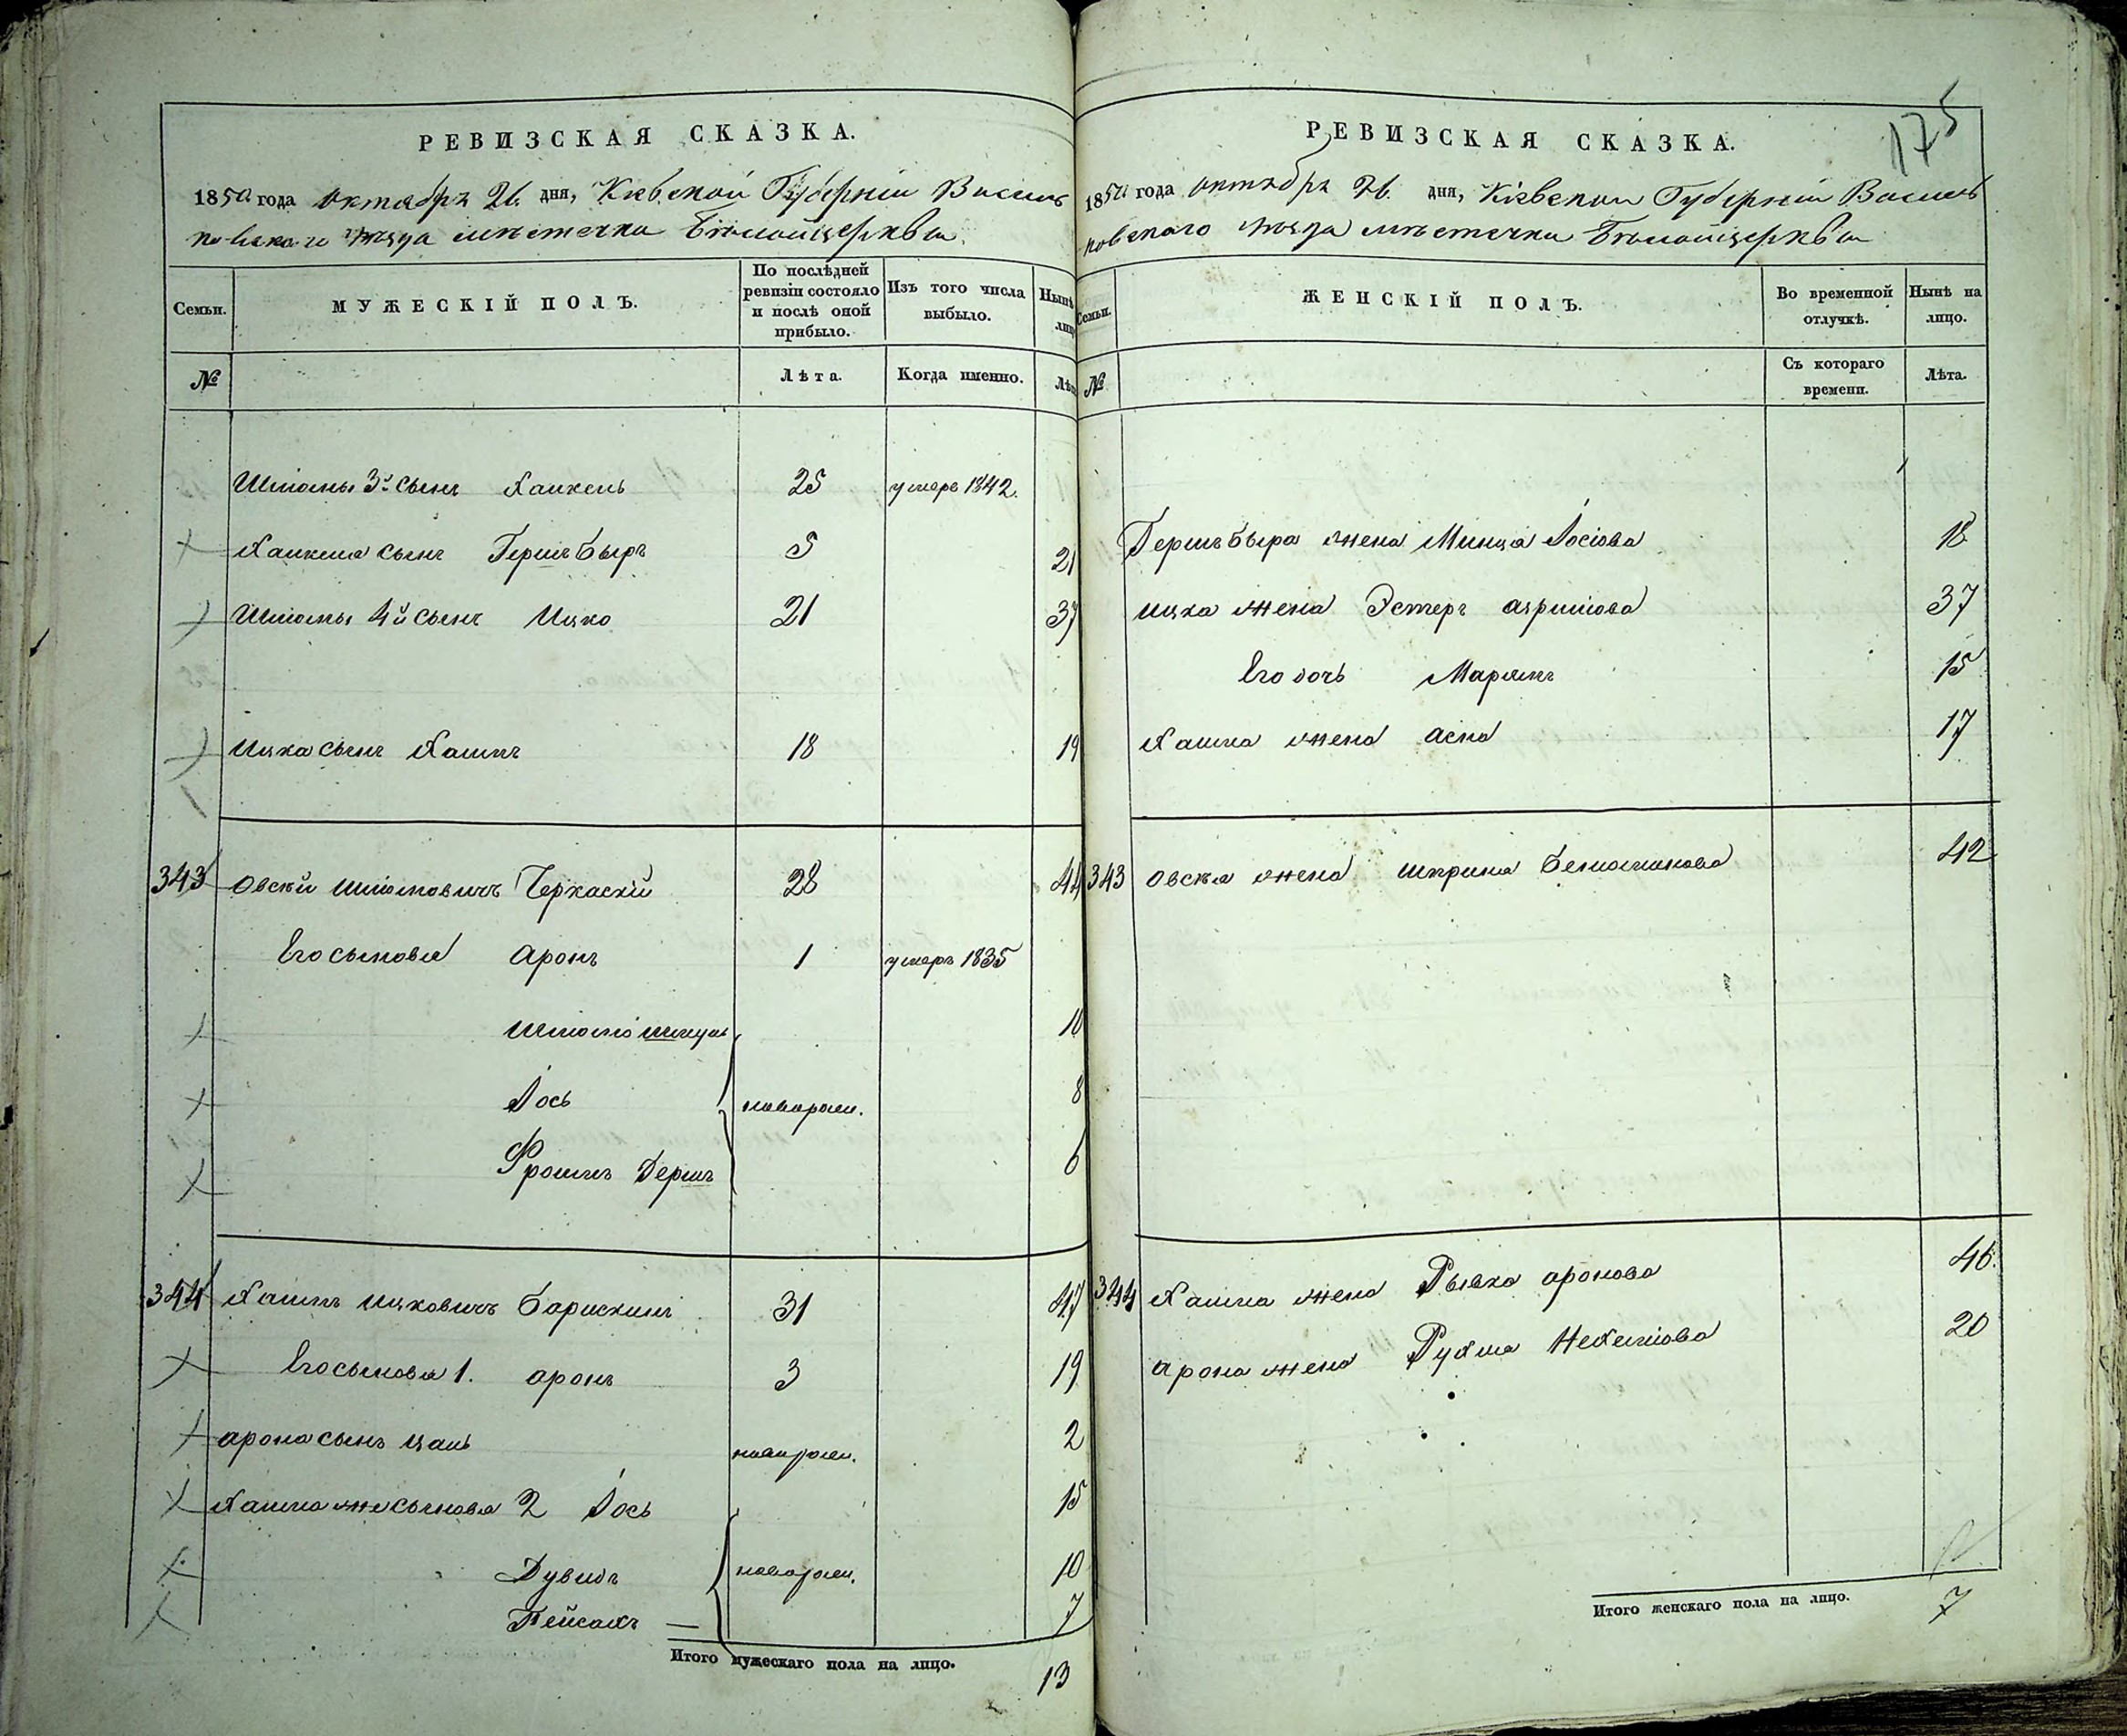 РЕВИЗСКАЯ СКАЗКА.
1850 года октября 26 дня, Кіевской Губерніи Василь
ковскаго уѣзда мѣстечка Бѣлойцеркви
Семьи.
МУЖЕСКІЙ ПОЛЪ.
По послѣдней ревизіи состояло и послѣ оной прибыло.
Изъ того числа выбыло.
Нынѣ лицо
№
Лѣта.
Когда именно.
Лѣта
Шліомы 3й сынъ Хаикель 25 умеръ 1842.
Хаикеля сынъ Гершъ Быръ 5 21
Шліомы 4й сынъ Ицко 21 37
Ицка сынъ Хаимъ 18 19
343 Овсѣй Шліомовичъ Черкаскій 28 44
Его сыновья Аронъ 1 умеръ 1835
Шліомо 10
Іось новорож. 8
Фроимъ Гершъ 6
344 Хаимъ Ицковичъ 31 47
Его сыновья 1. Аронъ 3 19
Арона сынъ новорож. 2
Хаима же сыновья 2 Іось 15
Дувидъ новорож. 10
Пейсахъ 7
Итого мужескаго пола на лицо. 13
175
РЕВИЗСКАЯ СКАЗКА.
1850 года октября 26 дня, Кіевской Губерніи Василь
ковскаго уѣзда мѣстечка Бѣлойцеркви
Семьи.
ЖЕНСКІЙ ПОЛЪ.
Во временной отлучкѣ.
Нынѣ на лицо.
№
Съ котораго времени.
Лѣта.
Гершъ Быра жена Минця Іосіова 18
Ицка жена Эстеръ 37
Его дочь Марямъ 15
Хаима жена Асна 17
343 Овсѣя жена 42
344 Хаима жена Рывка Аронова 46
Арона жена Рухля 20
Итого женскаго пола на лицо. 7